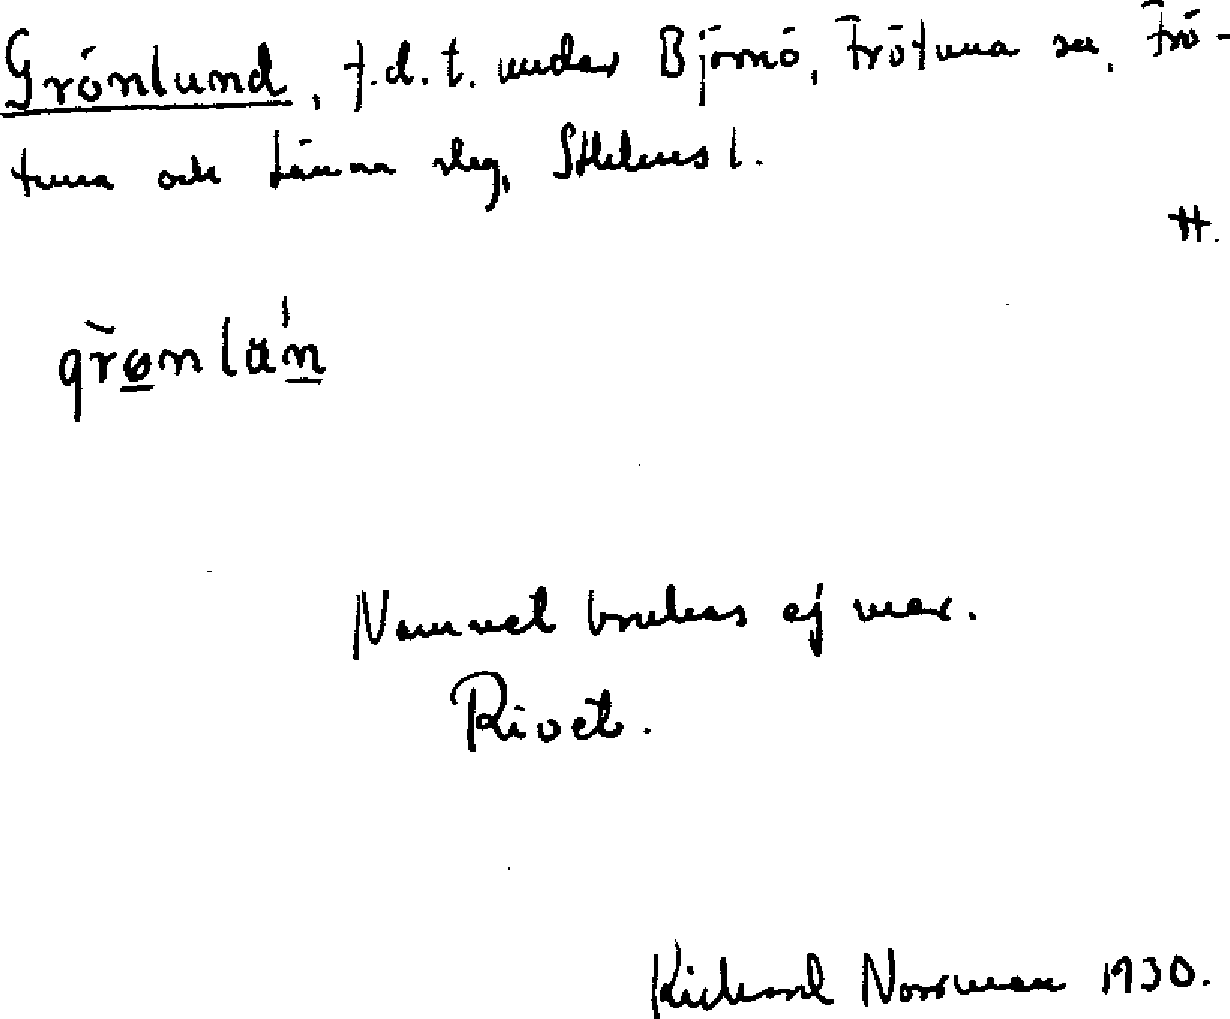 Grönlund, f.d. t. under Björnö, Frötuna sn, Frö-
tuna och Länna slag, Sthlms l.
H.
grønlan
Namnet brukas ej mer.
Rivet.
Richard Norrman 1930.